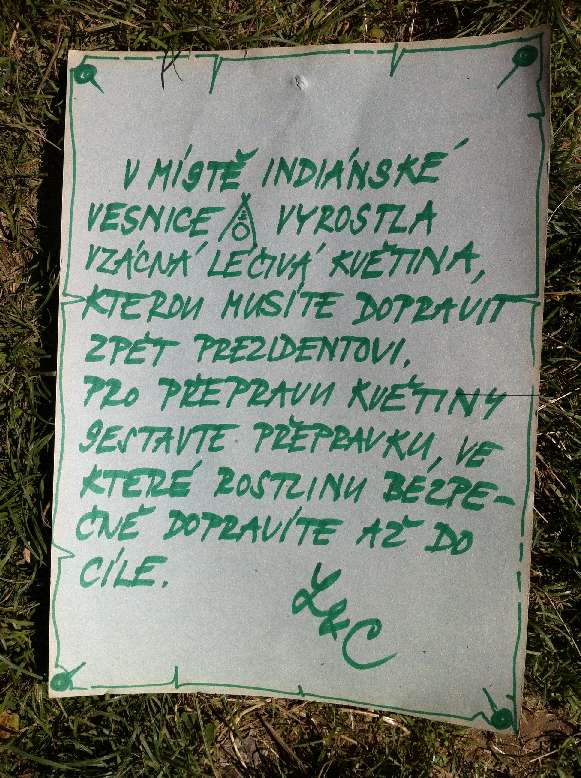 V MÍSTĚ INDIÁNSKÉ
VESNICE VYROSTLA
VZÁCNÁ LÉČIVÁ KVĚTINA,
KTEROU MUSÍTE DOPRAVIT
ZPĚT PREZIDENTOVI.
PRO PŘEPRAVU KVĚTINY
SESTAVTE PŘEPRAVKU, VE
KTERÉ ROSTLINU BEZPE-
ČNĚ DOPRAVÍTE AŽ DO
CÍLE.
L&C